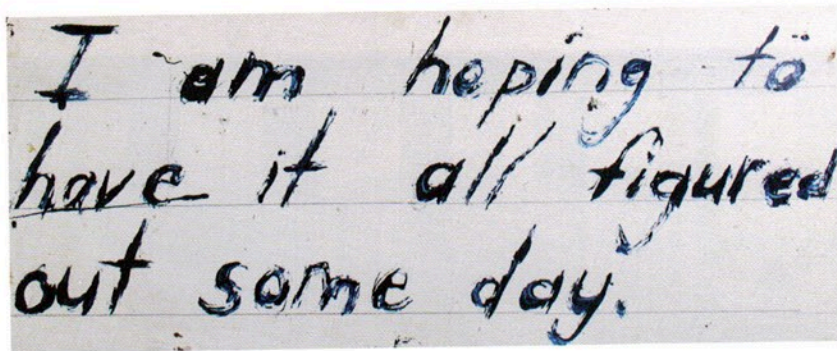 I am hoping to
have it all figured
out some day.